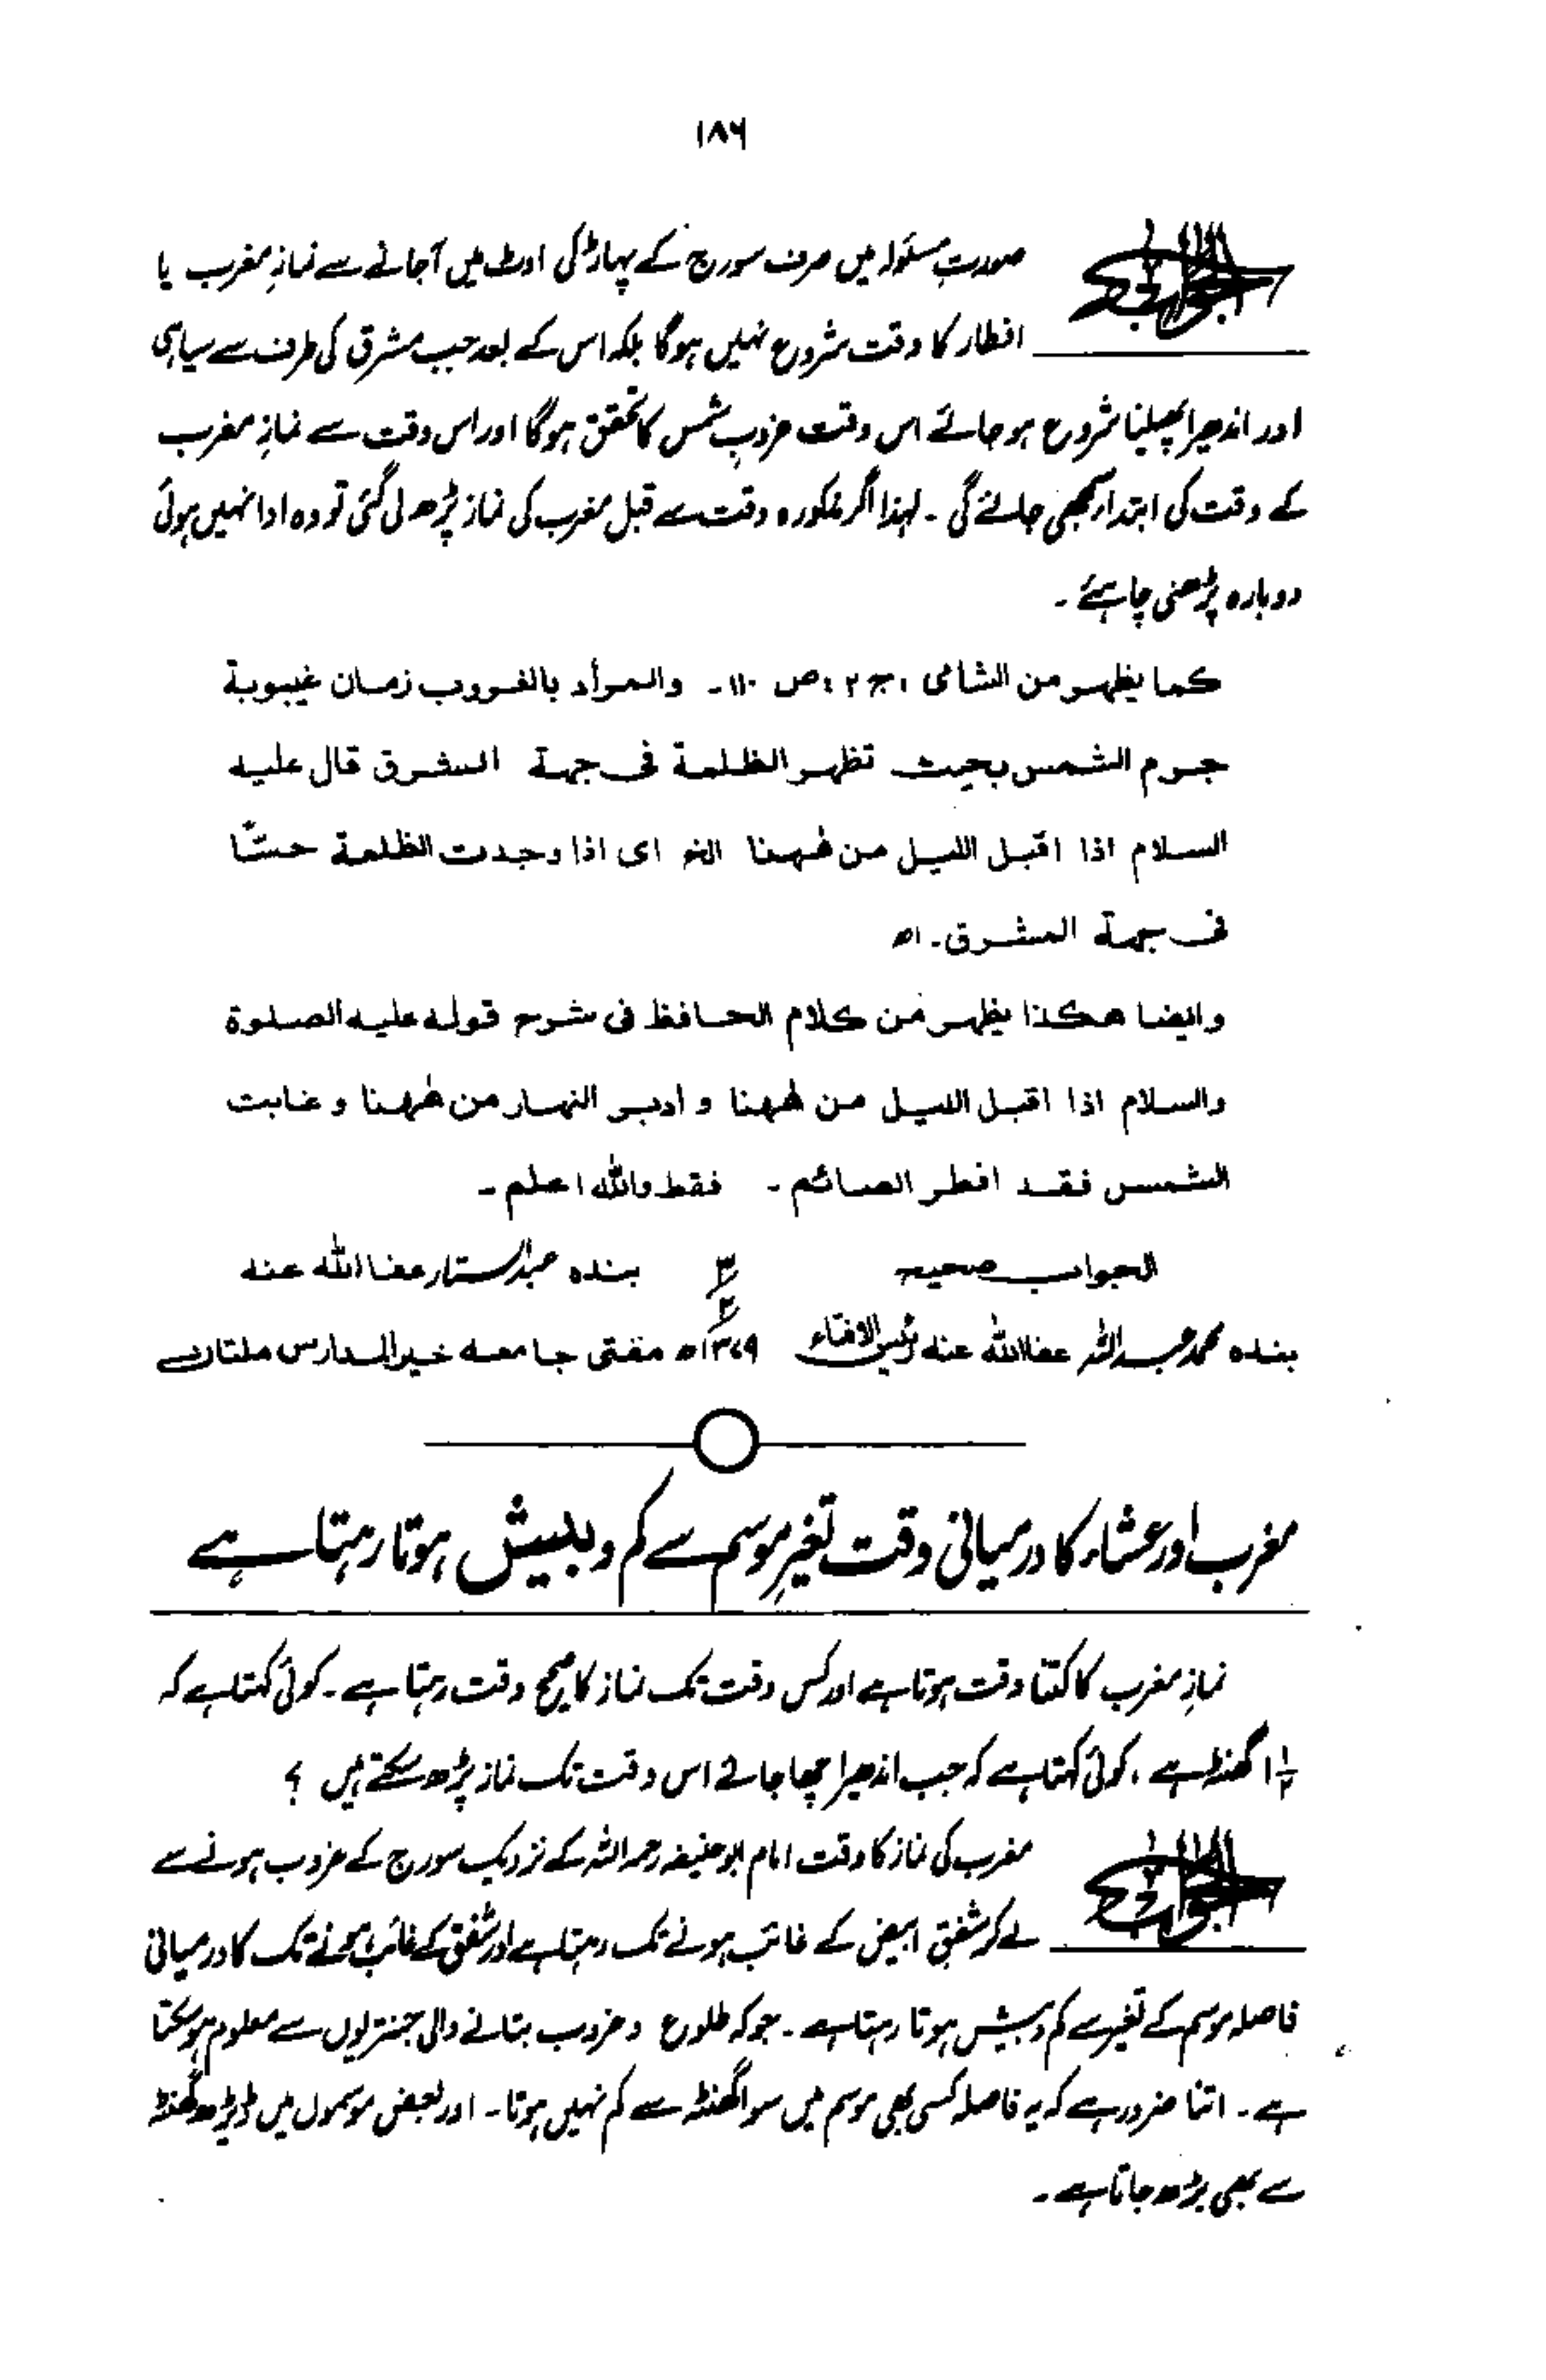 ۱۸۶
الجواب صورتِ مسئولہ میں صرف سورج کے پہاڑ کی اوٹ میں آجانے سے نمازِ مغرب یا
افطار کا وقت شروع نہیں ہوگا بلکہ اس کے بعد جب مشرق کی طرف سے سیاہی
اور اندھیرا پھیلنا شروع ہو جائے اس وقت غروبِ شمس کا تحقق ہوگا اور اس وقت سے نمازِ مغرب
کے وقت کی ابتداء سمجھی جائے گی ۔ لہذا اگر مذکورہ وقت سے قبل مغرب کی نماز پڑھ لی گئی تو وہ ادا نہیں ہوئی
دوبارہ پڑھنی چاہیئے ۔
كما يظهر من الشامی ، ج ۲ ، ص ۱۱۰ ۔ والمراد بالغروب زمان غيبوبة
جرم الشمس بحيث تظهر الظلمة فی جهة المشرق قال عليه
السلام اذا اقبل الليل من ههنا الخ ای اذا وجدت الظلمة حسًّا
فی جهة المشرق ۔ اھ
وايضا هكذا يظهر من كلام الحافظ فی شرح قوله عليه الصلوة
والسلام اذا اقبل الليل من ههنا و ادبر النهار من ههنا و غابت
الشمس فقد افطر الصائم ۔ فقط والله اعلم ۔
الجواب صحيح بندہ عبدالستار عفا اللہ عنہ
بندہ محمد عبداللہ عفا اللہ عنہ رئیس الافتاء ۱۳۷۹ھ مفتی جامعہ خیر المدارس ملتان
مغرب اور عشاء کا درمیانی وقت تغیرِ موسم سے کم و بیش ہوتا رہتا ہے
نمازِ مغرب کا کتنا وقت ہوتا ہے اور کس وقت تک نماز کا صحیح وقت رہتا ہے ۔ کوئی کہتا ہے کہ
۱½ گھنٹہ ہے ، کوئی کہتا ہے کہ جب اندھیرا چھا جائے اس وقت تک نماز پڑھ سکتے ہیں ؟
الجواب مغرب کی نماز کا وقت امام ابو حنیفہ رحمہ اللہ کے نزدیک سورج کے غروب ہونے سے
لے کر شفق ابیض کے غائب ہونے تک رہتا ہے اور شفق کے غائب ہونے تک کا درمیانی
فاصلہ موسم کے تغیر سے کم و بیش ہوتا رہتا ہے ۔ جو کہ طلوع و غروب بتانے والی جنتریوں سے معلوم ہو سکتا
ہے ۔ اتنا ضرور ہے کہ یہ فاصلہ کسی بھی موسم میں سوا گھنٹہ سے کم نہیں ہوتا ۔ اور بعض موسموں میں ڈیڑھ گھنٹہ
سے بھی بڑھ جاتا ہے ۔